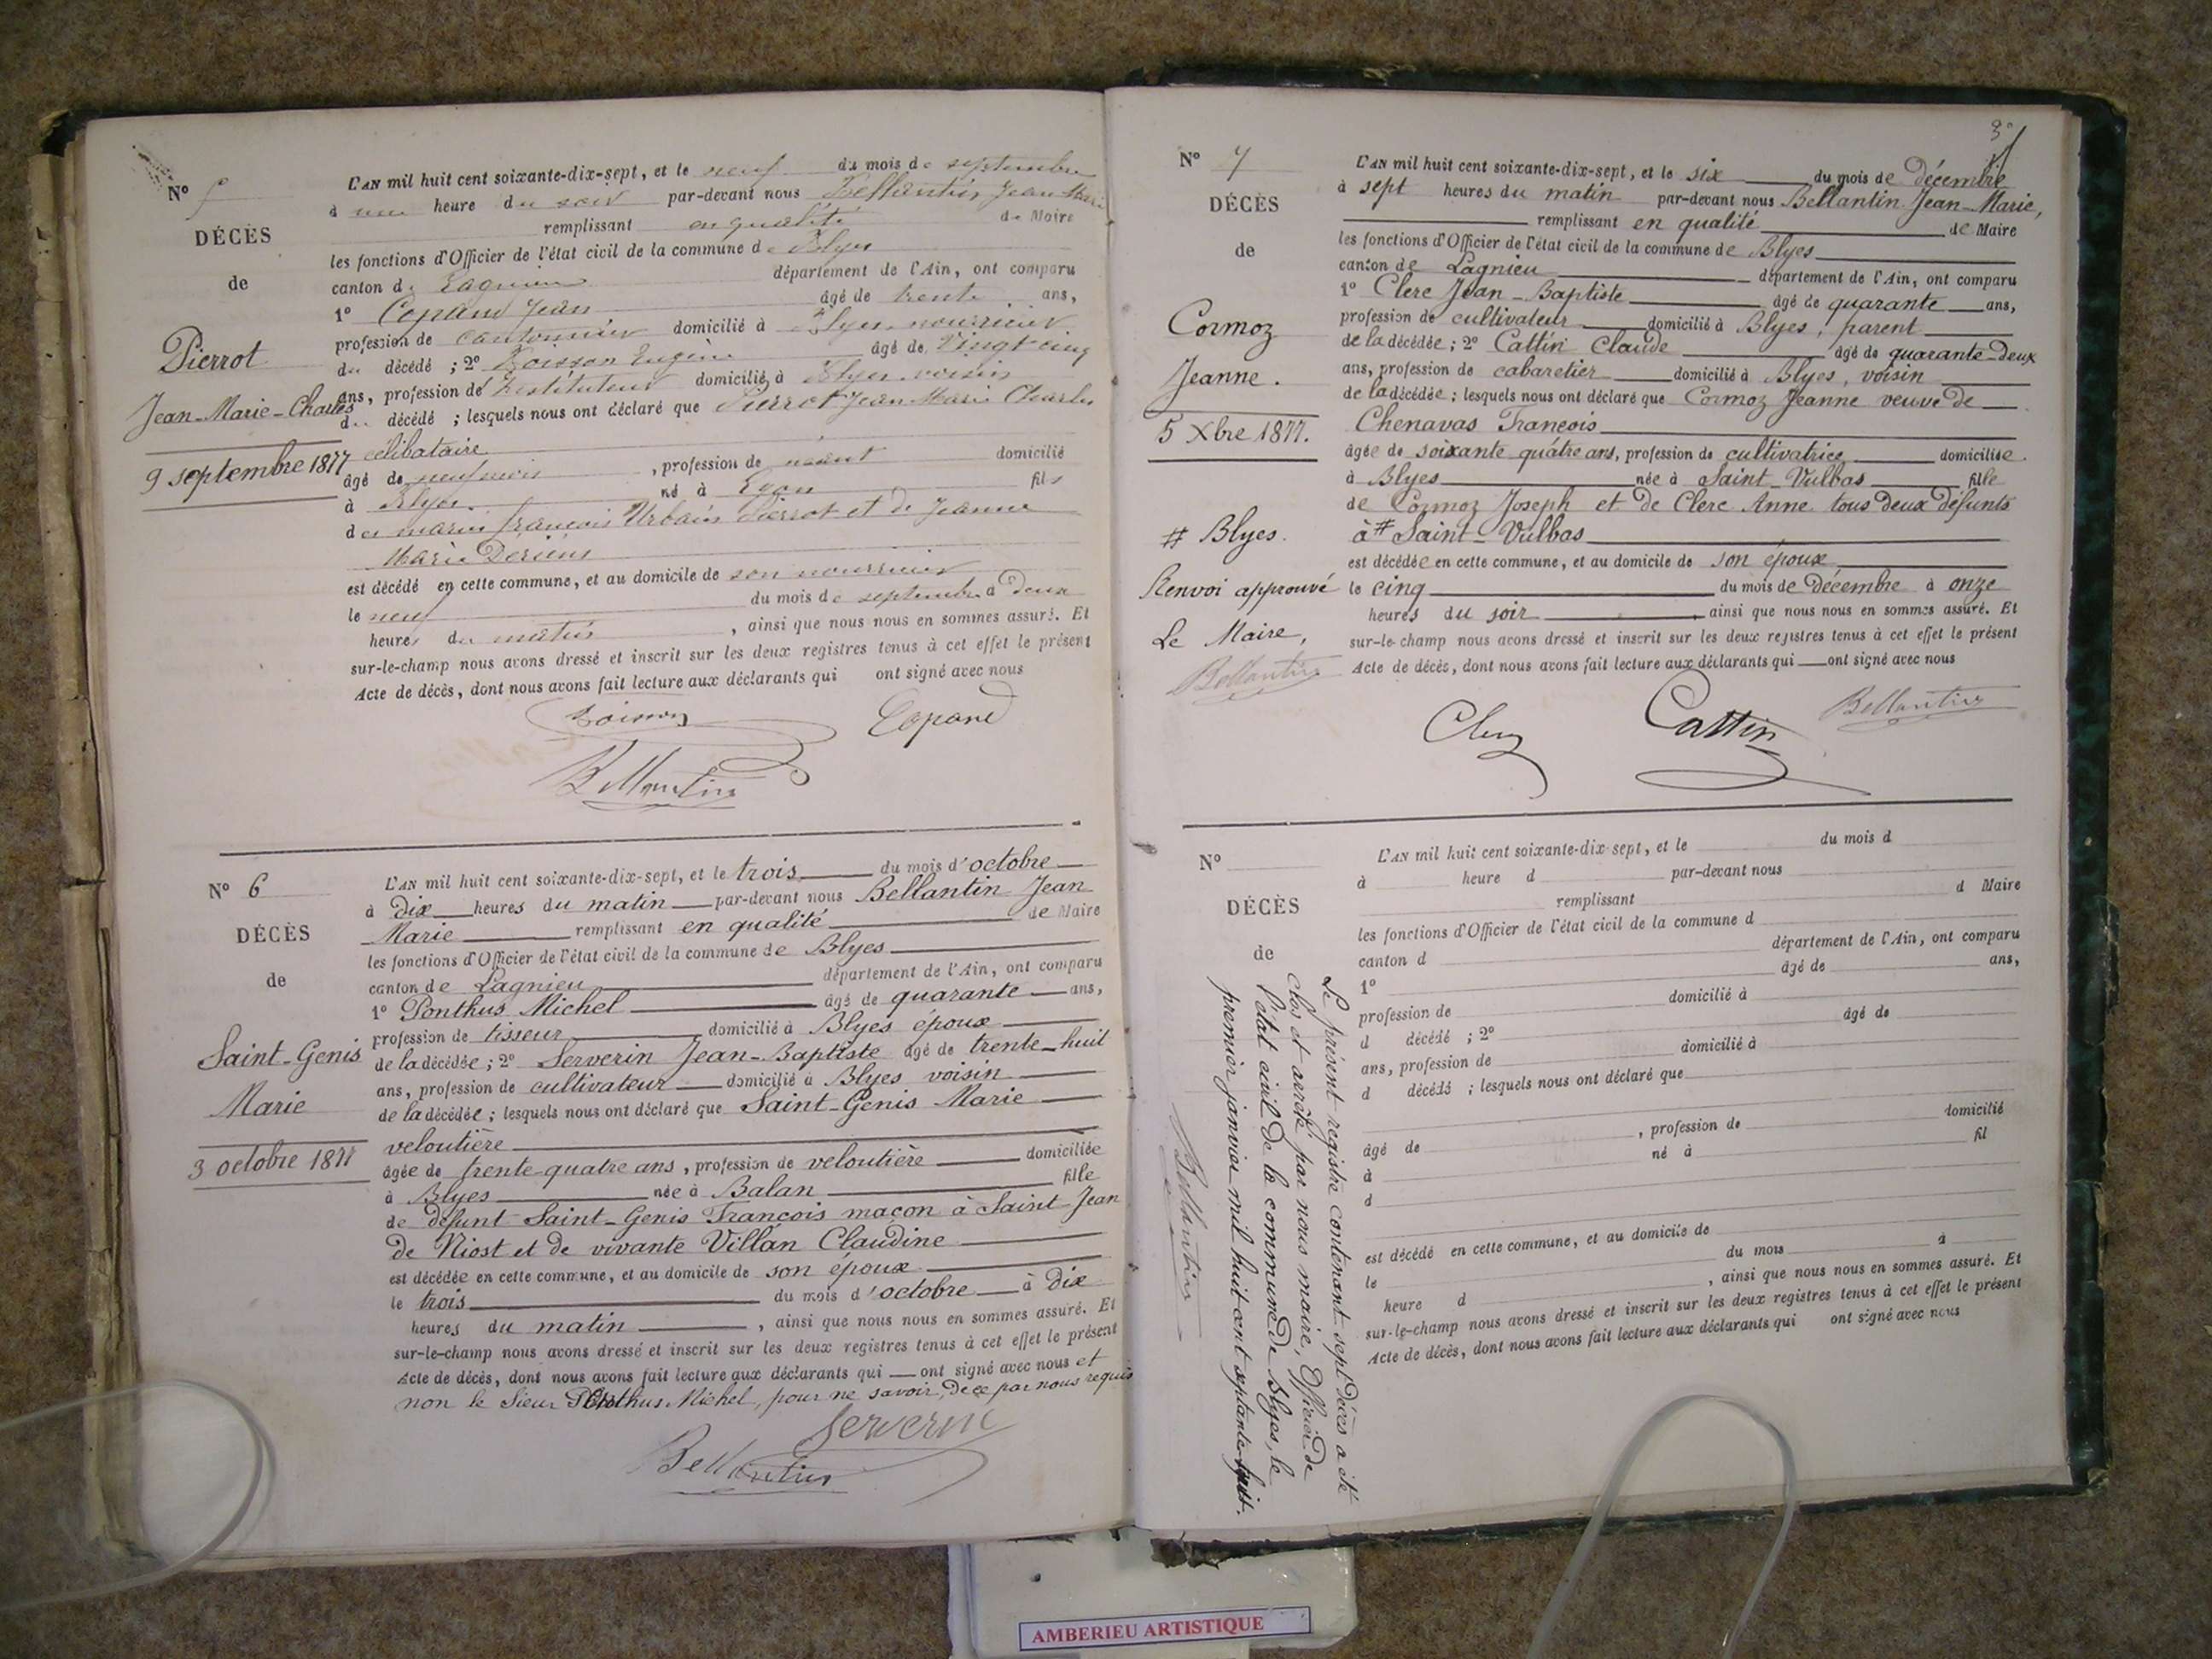 N° 5
DÉCÈS
de
Pierrot
Jean-Marie-Charles
9 septembre 1877
L'AN mil huit cent soixante-dix-sept, et le neuf du mois de septembre
à une heure du soir par-devant nous Bellantin Jean Marie
remplissant en qualité de Maire
les fonctions d'Officier de l'état civil de la commune de Blyes
canton de Lagnieu département de l'Ain, ont comparu
1° Copand Jean âgé de trente ans,
profession de cantonnier domicilié à Blyes nourricier
du décédé ; 2° Boisson Eugène âgé de vingt cinq
ans, profession de Instituteur domicilié à Blyes voisin
du décédé ; lesquels nous ont déclaré que Pierrot Jean Marie Charles
célibataire
âgé de neuf mois , profession de néant domicilié
à Blyes né à Lyon fils
de marin françois Urbain Pierrot et de Jeanne
Marie
est décédé en cette commune, et au domicile de son nourricier
le neuf du mois de septembre à deux
heures du matin , ainsi que nous nous en sommes assuré. Et
sur-le-champ nous avons dressé et inscrit sur les deux registres tenus à cet effet le présent
Acte de décès, dont nous avons fait lecture aux déclarants qui ont signé avec nous
Boisson Copand
Bellantin
N° 6
DÉCÈS
de
Saint-Genis
Marie
3 octobre 1877
L'AN mil huit cent soixante-dix-sept, et le trois du mois d'octobre
à dix heures du matin par-devant nous Bellantin Jean
Marie remplissant en qualité de Maire
les fonctions d'Officier de l'état civil de la commune de Blyes
canton de Lagnieu département de l'Ain, ont comparu
1° Ponthus Michel âgé de quarante ans,
profession de tisseur domicilié à Blyes époux
de la décédée ; 2° Serverin Jean-Baptiste âgé de trente-huit
ans, profession de cultivateur domicilié à Blyes voisin
de la décédée ; lesquels nous ont déclaré que Saint-Genis Marie
veloutière
âgée de trente-quatre ans , profession de veloutière domiciliée
à Blyes née à Balan fille
de défunt Saint-Genis François maçon à Saint Jean
de Niost et de vivante Villan Claudine
est décédée en cette commune, et au domicile de son époux
le trois du mois d'octobre à dix
heures du matin , ainsi que nous nous en sommes assuré. Et
sur-le-champ nous avons dressé et inscrit sur les deux registres tenus à cet effet le présent
Acte de décès, dont nous avons fait lecture aux déclarants qui ont signé avec nous et
non le Sieur Ponthus Michel, pour ne savoir, de ce par nous requis
Serverin
Bellantin
3
N° 7
DÉCÈS
de
Cormoz
Jeanne.
5 Xbre 1877.
# Blyes.
Renvoi approuvé
Le Maire,
Bellantin
L'AN mil huit cent soixante-dix-sept, et le six du mois de décembre
à sept heures du matin par-devant nous Bellantin Jean-Marie,
remplissant en qualité de Maire
les fonctions d'Officier de l'état civil de la commune de Blyes
canton de Lagnieu département de l'Ain, ont comparu
1° Clerc Jean-Baptiste âgé de quarante ans,
profession de cultivateur domicilié à Blyes, parent
de la décédée ; 2° Cattin Claude âgé de quarante-deux
ans, profession de cabaretier domicilié à Blyes, voisin
de la décédée ; lesquels nous ont déclaré que Cormoz Jeanne veuve de
Chenavas François
âgée de soixante quatre ans, profession de cultivatrice domiciliée
à Blyes née à Saint-Vulbas fille
de Cormoz Joseph et de Clerc Anne tous deux défunts
à # Saint-Vulbas
est décédée en cette commune, et au domicile de son époux
le cinq du mois de Décembre à onze
heures du soir , ainsi que nous nous en sommes assuré. Et
sur-le-champ nous avons dressé et inscrit sur les deux registres tenus à cet effet le présent
Acte de décès, dont nous avons fait lecture aux déclarants qui ont signé avec nous
Clerc Cattin Bellantin
N°
DÉCÈS
de
L'AN mil huit cent soixante-dix-sept, et le du mois d
à heure d par-devant nous
remplissant d Maire
les fonctions d'Officier de l'état civil de la commune d
canton d département de l'Ain, ont comparu
1° âgé de ans,
profession de domicilié à
d décédé ; 2° âgé de
ans, profession de domicilié à
d décédé ; lesquels nous ont déclaré que
âgé de , profession de domicilié
à né à fil
d
est décédé en cette commune, et au domicile de
le du mois à
heure d , ainsi que nous nous en sommes assuré. Et
sur-le-champ nous avons dressé et inscrit sur les deux registres tenus à cet effet le présent
Acte de décès, dont nous avons fait lecture aux déclarants qui ont signé avec nous
Le présent registre contenant sept décès a été
clos et arrêté par nous maire, Officier de
l'état civil de la commune de Blyes, le
premier janvier mil huit cent septante-huit.
Bellantin
AMBERIEU ARTISTIQUE